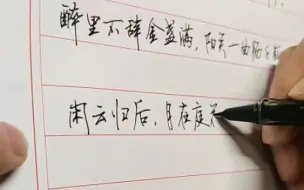 醉里不辞金盏满，阳关一曲肠千断
闲云归后，月在庭花